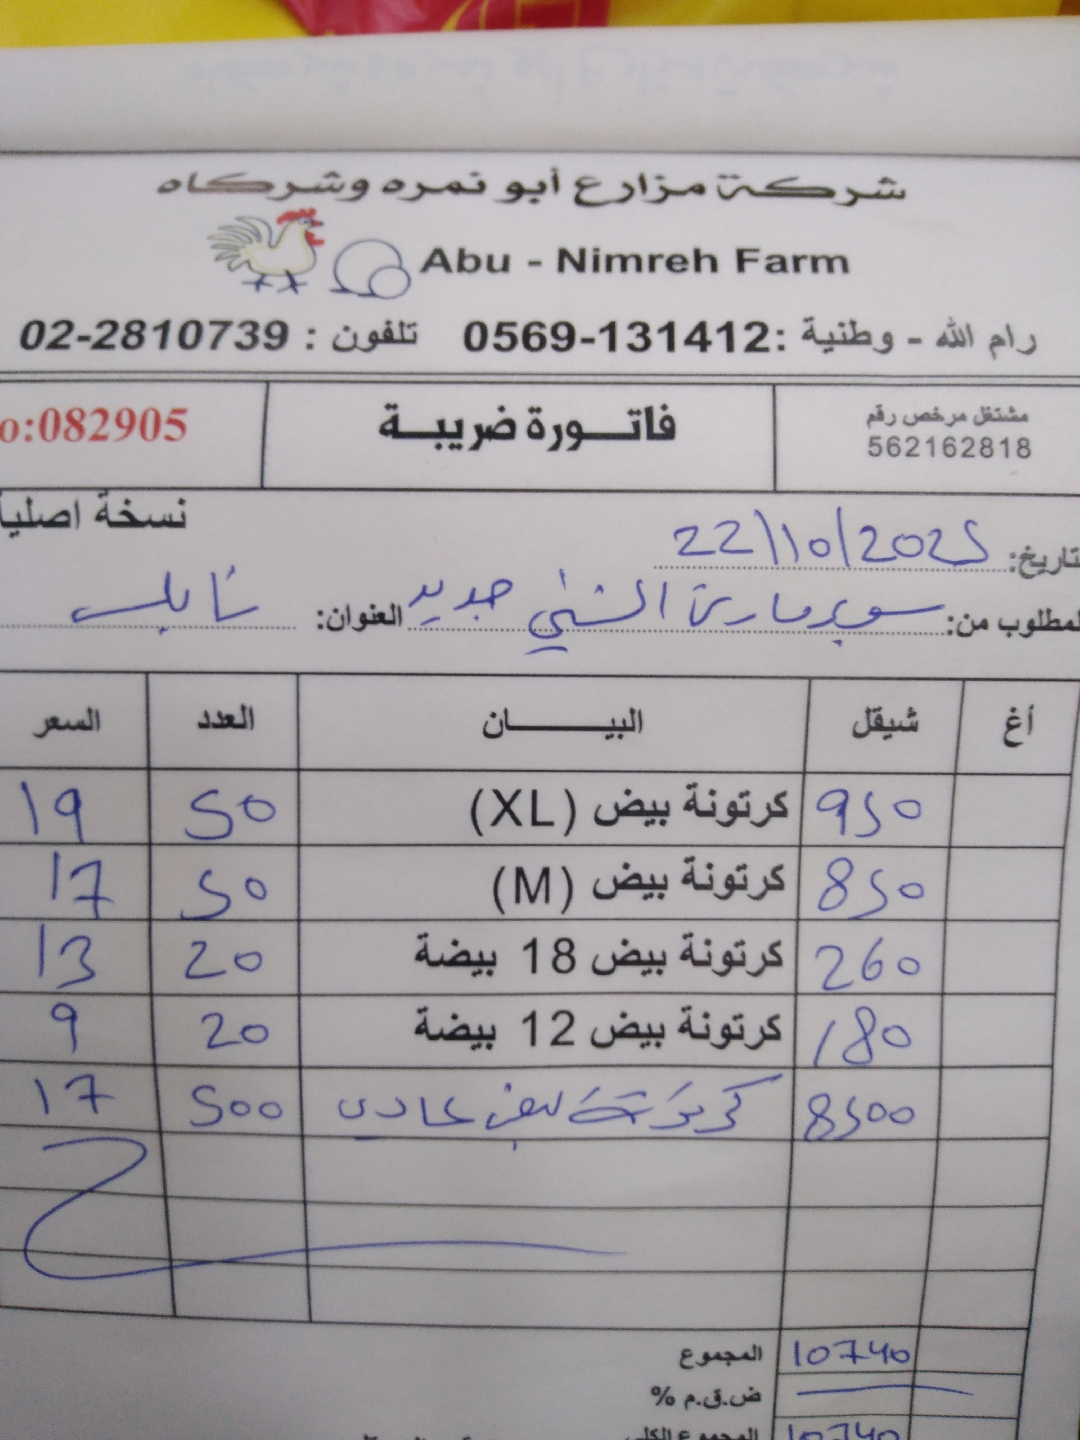 شركة مزارع أبو نمره وشركاه
Abu - Nimreh Farm
رام الله - وطنية : 0569-131412 تلفون : 02-2810739
مشتغل مرخص رقم 562162818
فاتورة ضريبة
o:082905
نسخة اصلية
تاريخ: 22/10/2025
لمطلوب من: سوبرماركت الشني جديد العنوان: نابلس
أغ شيقل البيان العدد السعر
950 كرتونة بيض (XL) 50 19
850 كرتونة بيض (M) 50 17
260 كرتونة بيض 18 بيضة 20 13
180 كرتونة بيض 12 بيضة 20 9
8500 كرتونة بيض عادي 500 17
المجموع 10740
ض.ق.م %
المجموع الكلي 10740